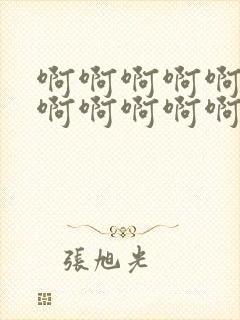 啊啊啊啊啊
啊啊啊啊啊
張旭光